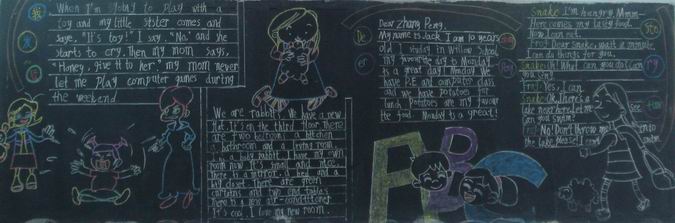 我
When I'm going to play with a
toy and my little sister comes and
says, "It's toy!" I say, "No" and she
starts to cry. Then my mom says,
"Honey, give it to her." my mom never
let me play computer games during
the weekend
We are rabbit. We have a new
flat. It's on the third floor. There
two bedrooms, a kitchen
a bathroom and a living room
a baby rabbit. I have my own
room now. It's small and nice.
There is a mirror, a bed and a
big closet. There are green
curtains and two end tables.
There is a new air-conditioner.
It's cool. I love my new room.
De
er
Dear Zhang Peng,
My name is Jack. I am 10 years
old. I study in Willow School
my favourite day is Monday.
is a great day! Monday We
have P.E and computer class
and we have potatoes for
lunch. Potatoes are my favour
ite food. Monday is a great!
A B C
Snake I'm hungry. Mmm—
Here comes my tasty food.
Now I can eat.
Frog Dear Snake, wait a minute.
I can do things for you.
Snake Oh! What can you do? Can
you sing?
Frog Yes, I can.
Snake Ok! There is a
lake near here. Let me see
Can you swim?
Frog No! Don't throw me into
the lake, please! I can't
Sto
ry